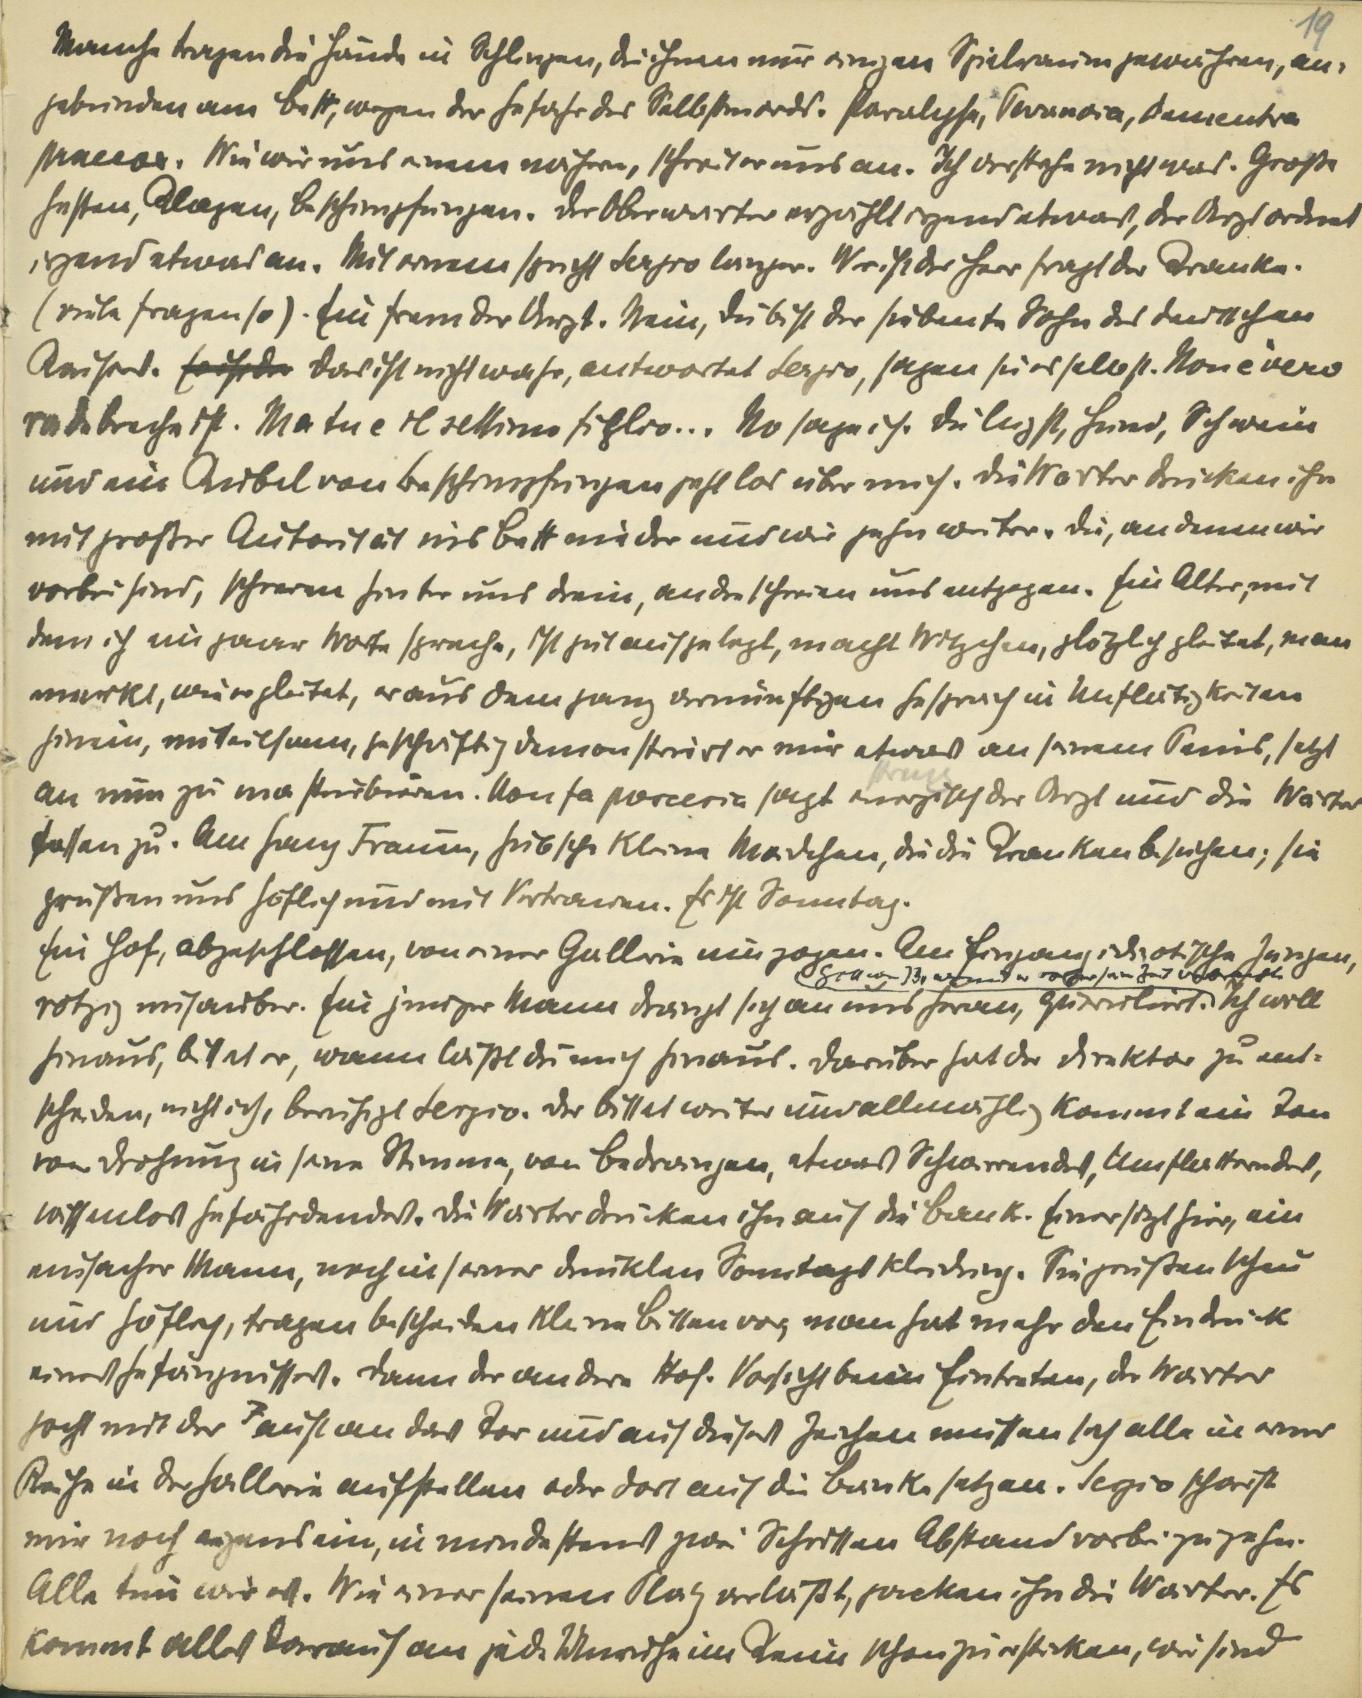 19
Manche tragen die Hände in Schlingen, die ihnen nur einigen Spielraum gewähren, an-
gebunden am Bett, wegen der Gefahr des Selbstmords. Paralyse, Paranoia, Dementia
praecox. Wie wir uns einem nähern, schreit er uns an. Ich verstehe nicht was. Große
Gesten, Klagen, Beschimpfungen. Der Oberwärter erzählt irgend etwas, der Arzt ordnet
irgend etwas an. Mit einem spricht Sergio länger. Wer ist der Herr fragt der Kranke.
(viele fragen so). Ein fremder Arzt. Nein, du bist der siebente Sohn des deutschen
Kaisers. Das ist nicht wahr, antwortet Sergio, sagen sie es selbst. Non è vero
radebreche ich. Ma tu e il settimo figlio... No sage ich. Du lügst, Hund, Schwein
und ein Kübel von Beschimpfungen geht los über mich. Die Wärter drücken ihn
mit großer Autorität ins Bett nieder und wir gehn weiter. Die, an denen wir
vorbei sind, schreien hinter uns drein, andre schreien uns entgegen. Ein Alter, mit
dem ich ein paar Worte spreche, ist gut aufgelegt, macht Witzchen, plötzlich gleitet, man
merkt, wie er gleitet, er aus dem ganz vernünftigen Gespräch in Unflätigkeiten
hinein, mitteilsam, geschäftig demonstriert er mir etwas an seinem Penis, setzt
an nun zu masturbieren. Non fa porcheria sagt energisch der Arzt und die Wärter
streng
fassen zu. Am Gang Frauen, hübsche kleine Mädchen, die die Kranken besuchen; sie
grüßen uns höflich und mit Vertrauen. Es ist Sonntag.
Ein Hof, abgeschlossen, von einer Gallerie umzogen. Am Eingang idiotische Jungen,
rotzig unsauber. Ein junger Mann drängt sich an uns heran, queruliert. Ich will
hinaus, bittet er, wann läßt du mich hinaus. Darüber hat der Direktor zu ent-
scheiden, nicht ich, beruhigt Sergio. Der bittet weiter und allmählig kommt ein Ton
von Drohung in seine Stimme, von Bedrängen, etwas Schwirrendes, Umflatterndes,
wissenlos Gefährdendes. Die Wärter drücken ihn auf die Bank. Einer sitzt hier, ein
einfacher Mann, noch in seiner dunklen Sonntagskleidung. Sie grüßen scheu
und höflich, tragen bescheiden kleine Bitten vor, man hat mehr den Eindruck
eines Gefängnisses. Dann der andere Hof. Vorsicht beim Eintreten, der Wärter
pocht mit der Faust an das Tor und auf dieses Zeichen müssen sich alle in einer
Reihe in der Gallerie aufstellen oder dort auf die Bänke setzen. Sergio schärft
mir noch eigens ein, in mindestens zwei Schritten Abstand vorbei zu gehn.
Alle tun wir es. Wie einer seinen Platz verläßt, packen ihn die Wärter. Es
kommt alles darauf an jede Unruhe im Keim schon zu ersticken, wir sind